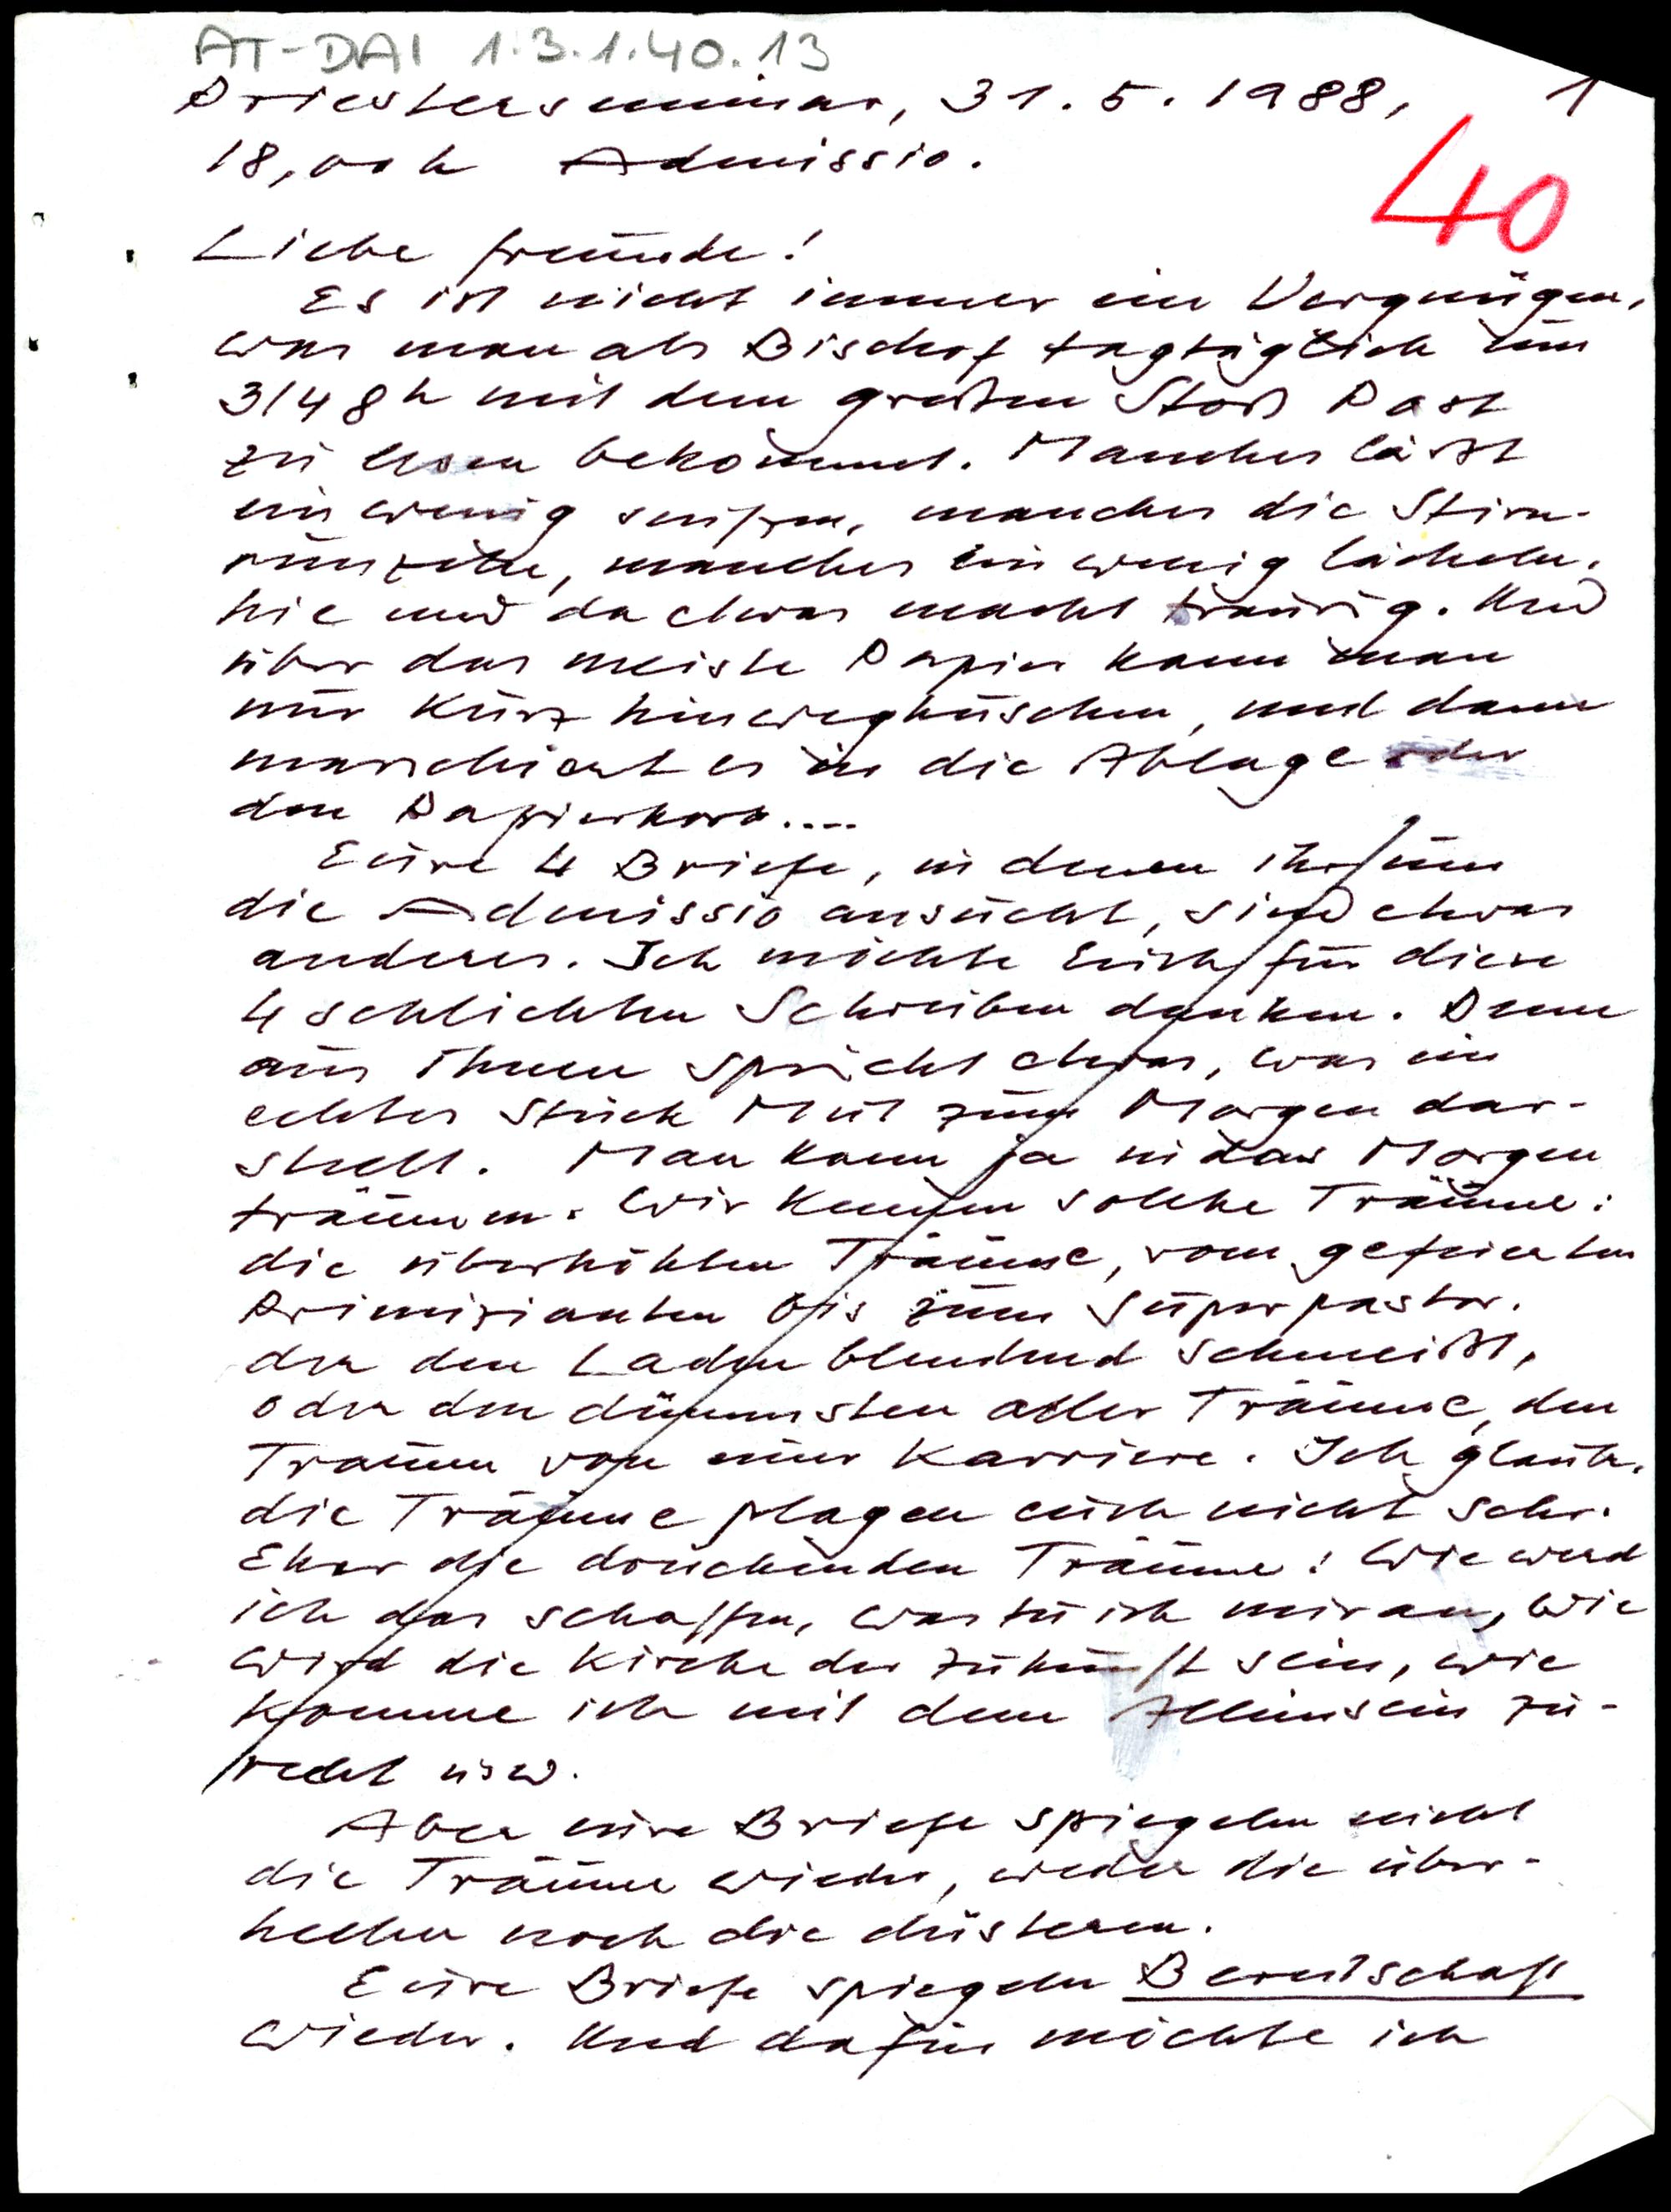 AT-DAI 1.3.1.40.13
Priesterseminar, 31.5.1988, 1
18,00 h Admissio.
40
Liebe Freunde!
Es ist nicht immer ein Vergnügen,
was man als Bischof tagtäglich um
3/4 8 h mit dem großen Stoß Post
zu lesen bekommt. Manches läßt
ein wenig seufzen, manches die Stirn
runzeln, manches ein wenig lächeln,
hie und da etwas macht traurig. Und
über das meiste Papier kann man
nur kurz hinweghuschen, und dann
marschiert es in die Ablage oder
den Papierkorb....
Eure 4 Briefe, in denen ihr um
die Admissio ansucht, sind etwas
anderes. Ich möchte Euch für diese
4 schlichten Schreiben danken. Denn
aus ihnen spricht etwas, was ein
echtes Stück Mut zum Morgen dar-
stellt. Man kann ja in das Morgen
träumen. Wir kennen solche Träume:
die überhöhten Träume, vom gefeierten
Primizianten bis zum Superpastor,
der den Laden blendend schmeißt,
oder den dümmsten aller Träume, den
Traum von einer Karriere. Ich glaube,
die Träume plagen euch nicht sehr.
Eher die drückenden Träume: Wie werd
ich das schaffen, was tu ich mir an, wie
wird die Kirche der Zukunft sein, wie
komme ich mit dem Alleinsein zu-
recht usw.
Aber eure Briefe spiegeln nicht
die Träume wieder, weder die über-
hellen noch die düsteren.
Eure Briefe spiegeln Bereitschaft
wieder. Und dafür möchte ich